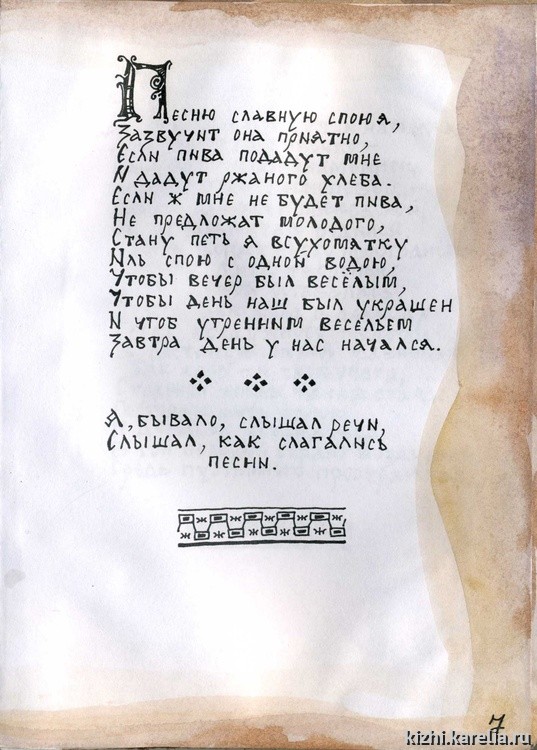 Песню славную спою я,
Зазвучит она приятно,
Если пива подадут мне
И дадут ржаного хлеба.
Если ж мне не будет пива,
Не предложат молодого,
Стану петь я всухомятку
Иль спою с одной водою,
Чтобы вечер был весёлым,
Чтобы день наш был украшен
И чтоб утренним весельем
Завтра день у нас начался.
А, бывало, слышал речи,
Слышал, как слагались
песни.
7
kizhi.karelia.ru